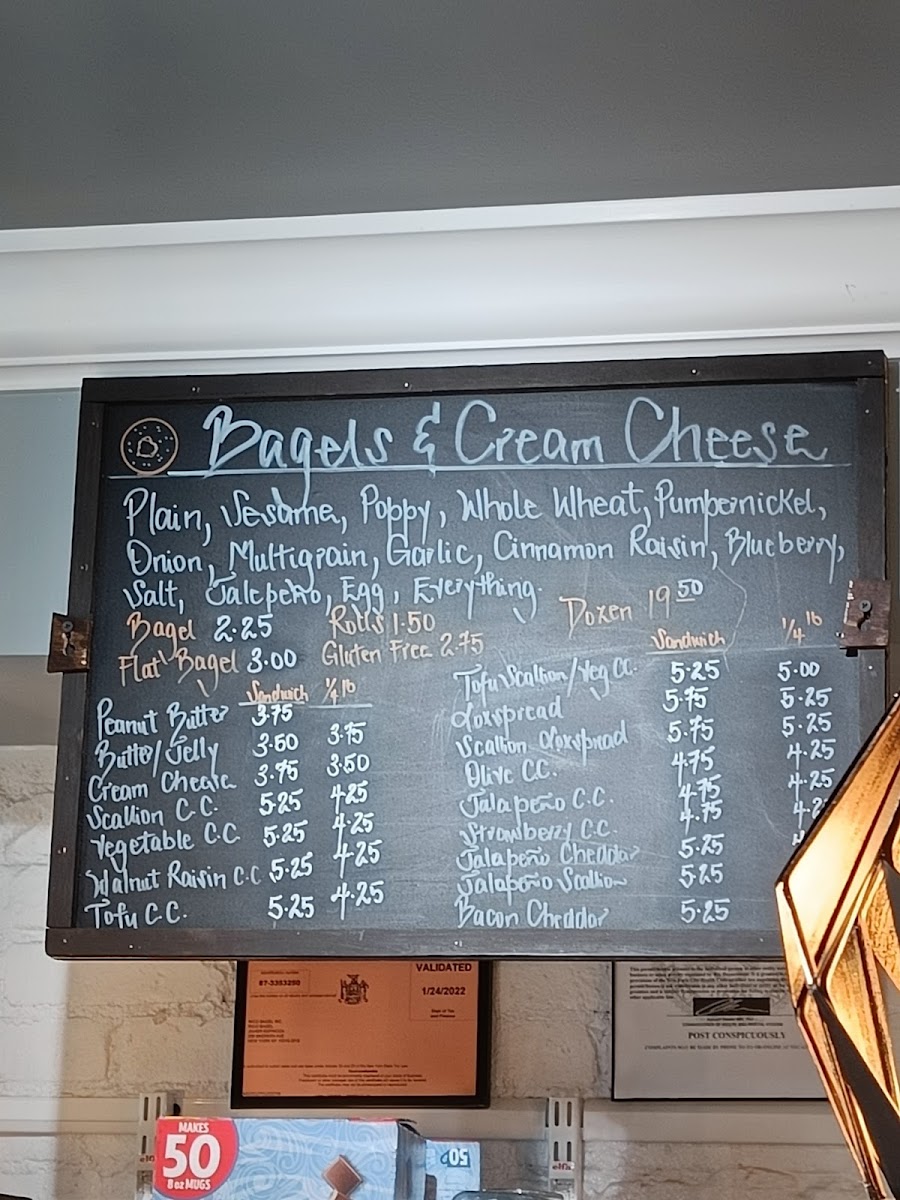 Bagels & Cream Cheese
Plain, Sesame, Poppy, Whole Wheat, Pumpernickel,
Onion, Multigrain, Garlic, Cinnamon Raisin, Blueberry,
Salt, Jalepeño, Egg, Everything.
Bagel 2.25 Rolls 1.50 Dozen 19 50
Flat Bagel 3.00 Gluten Free 2.75
Sandwich 1/4 lb
Peanut Butter 3.75
Butter/Jelly 3.50 3.75
Cream Cheese 3.75 3.50
Scallion C.C. 5.25 4.25
Vegetable C.C. 5.25 4.25
Walnut Raisin C.C 5.25 4.25
Tofu C.C. 5.25 4.25
Sandwich 1/4 lb
Tofu Scallion/Veg C.C. 5.25 5.00
Loxspread 5.75 5.25
Scallion Loxspread 5.75 5.25
Olive C.C. 4.75 4.25
Jalapeño C.C. 4.75 4.25
Strawberry C.C. 4.75 4.2
Jalapeño Cheddar 5.25 4
Jalapeño Scallion 5.25
Bacon Cheddar 5.25
VALIDATED
1/24/2022
Dept of Tax
and Finance
POST CONSPICUOUSLY
MAKES
50
8 oz MUGS
50
elfa